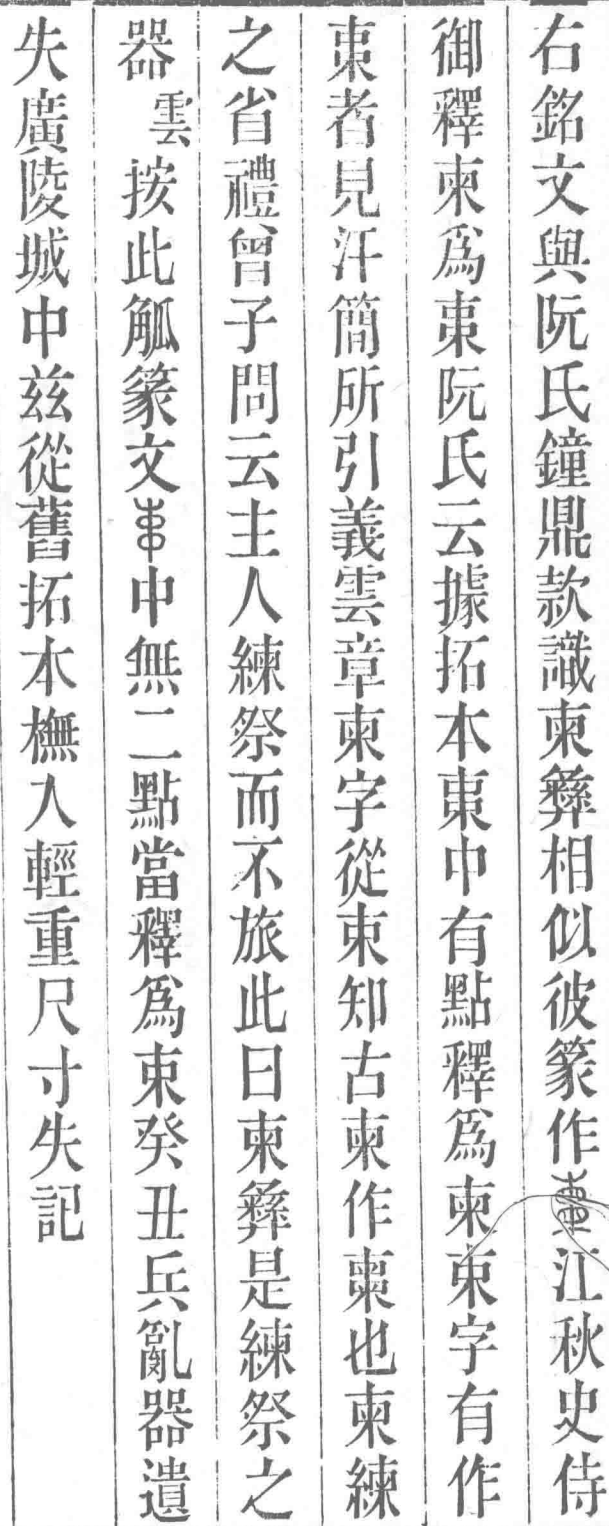 右銘文與阮氏鐘鼎款識柬彝相似彼篆作江秋史侍
御釋柬爲朿阮氏云據拓本朿中有點釋爲柬朿字有作
朿者見汗簡所引義雲章柬字從束知古柬作㯥也柬練
之省禮曾子問云主人練祭而不旅此曰柬彝是練祭之
器 雲按此觚篆文中無二點當釋爲束癸丑兵亂器遺
失廣陵城中兹從舊拓本橅入輕重尺寸失記